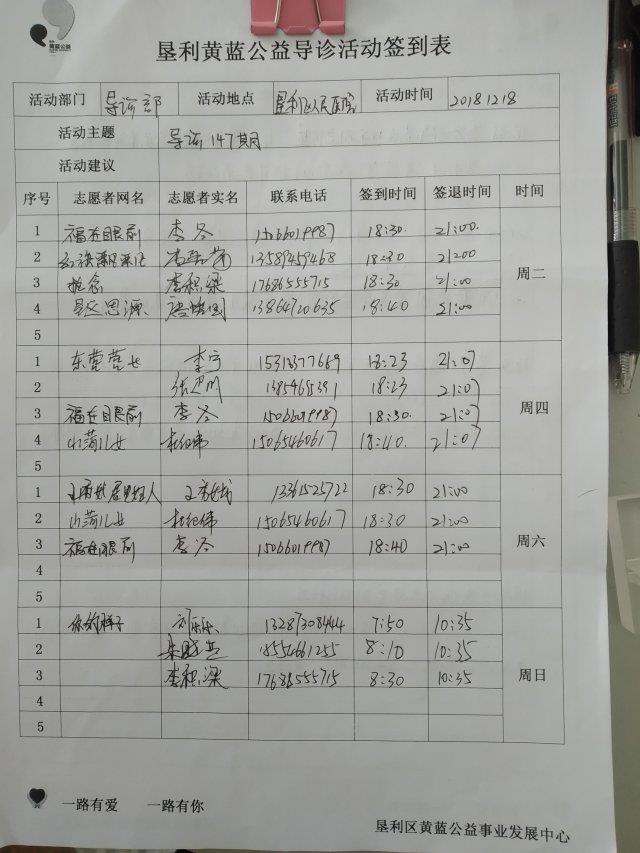 黄蓝公益
垦利黄蓝公益导诊活动签到表
活动部门 导诊部 活动地点 垦利区人民医院 活动时间 20181218
活动主题 导诊147期
活动建议
序号 志愿者网名 志愿者实名 联系电话 签到时间 签退时间 时间
1 福在眼前 李冬 15066019987 18:30 21:00 周二
2 13589459468 18:30 21:00
3 抱念 李积梁 17686555715 18:30 21:00
4 垦区思源 13864720635 18:40 21:00
5
1 东营营七 李宁 15318377689 18:23 21:07 周四
2 张卫川 1385465391 18:23 21:07
3 福在眼前 李冬 15066019987 18:30 21:07
4 山菏儿女 杜纪伟 15065460617 18:40 21:07
5
1 13361525722 18:30 21:00 周六
2 山菏儿女 杜纪伟 15065460617 18:30 21:00
3 福在眼前 李冬 15066019987 18:40 21:00
4
5
1 你的样子 刘乐乐 13287308444 7:50 10:35 周日
2 18554661255 8:10 10:35
3 李积梁 17686555715 8:30 10:35
4
5
一路有爱 一路有你
垦利区黄蓝公益事业发展中心